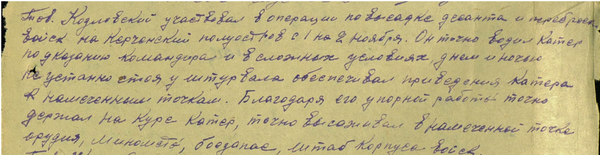 Тов. Козловский участвовал в операции по высадке десанта и переброске
войск на Керченский полуостров с 1 на 2 ноября. Он точно водил катер
по указанию командира и в сложных условиях днем и ночью
неустанно стоя у штурвала обеспечивал приведения катера
к намеченным точкам. Благодаря его упорной работы точно
держал на курсе катер, точно высаживал в намеченной точке
орудия, миномёты, боезапас, штаб корпуса войск